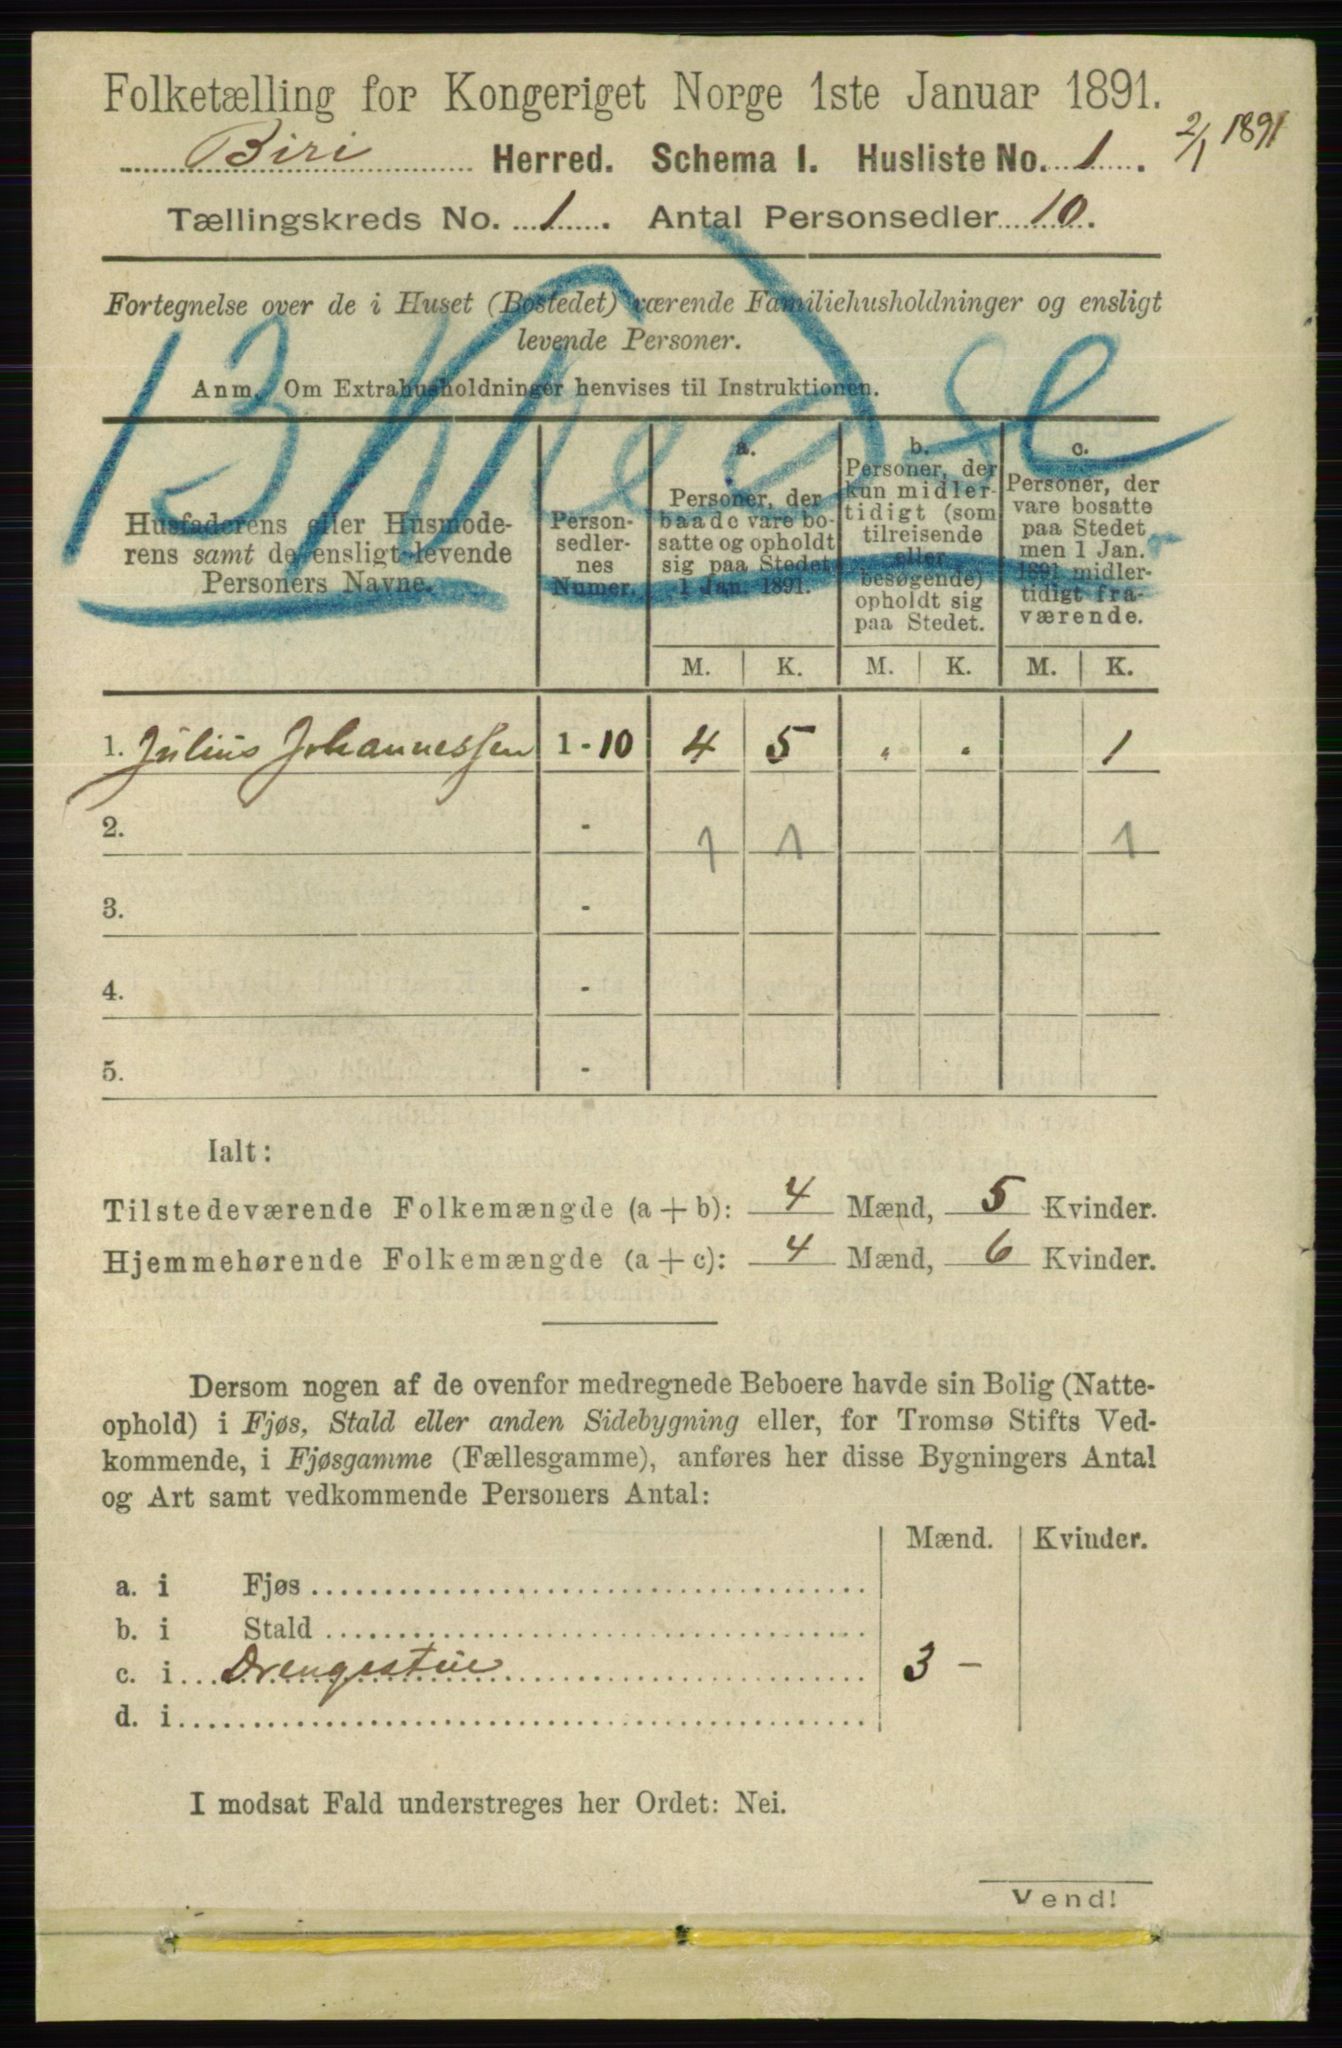 Folketælling for Kongeriget Norge 1ste Januar 1891.
2/1 1891
Biri Herred. Schema I. Husliste No. 1.
Tællingskreds No. 1. Antal Personsedler 10.
Fortegnelse over de i Huset (Bostedet) værende Familiehusholdninger og ensligt
levende Personer.
Anm. Om Extrahusholdninger henvises til Instruktionen.
Husfaderens eller Husmode-
rens samt de ensligt levende
Personers Navne.
Person-
sedler-
nes
Numer.
a.
Personer, der
baade vare bo-
satte og opholdt
sig paa Stedet
1 Jan. 1891.
b.
Personer, der
kun midler-
tidigt (som
tilreisende
eller
besøgende)
opholdt sig
paa Stedet.
c.
Personer, der
vare bosatte
paa Stedet
men 1 Jan.
1891 midler-
tidigt fra-
værende.
M. K. M. K. M. K.
1. Julius Johannessen 1 - 10 4 5 . . 1
2. - 1 1 1
3. -
4. -
5. -
Ialt:
Tilstedeværende Folkemængde (a + b): 4 Mænd, 5 Kvinder.
Hjemmehørende Folkemængde (a + c): 4 Mænd, 6 Kvinder.
Dersom nogen af de ovenfor medregnede Beboere havde sin Bolig (Natte-
ophold) i Fjøs, Stald eller anden Sidebygning eller, for Tromsø Stifts Ved-
kommende, i Fjøsgamme (Fællesgamme), anføres her disse Bygningers Antal
og Art samt vedkommende Personers Antal:
Mænd. Kvinder.
a. i Fjøs
b. i Stald
c. i Drengestue 3 -
d. i
I modsat Fald understreges her Ordet: Nei.
Vend!